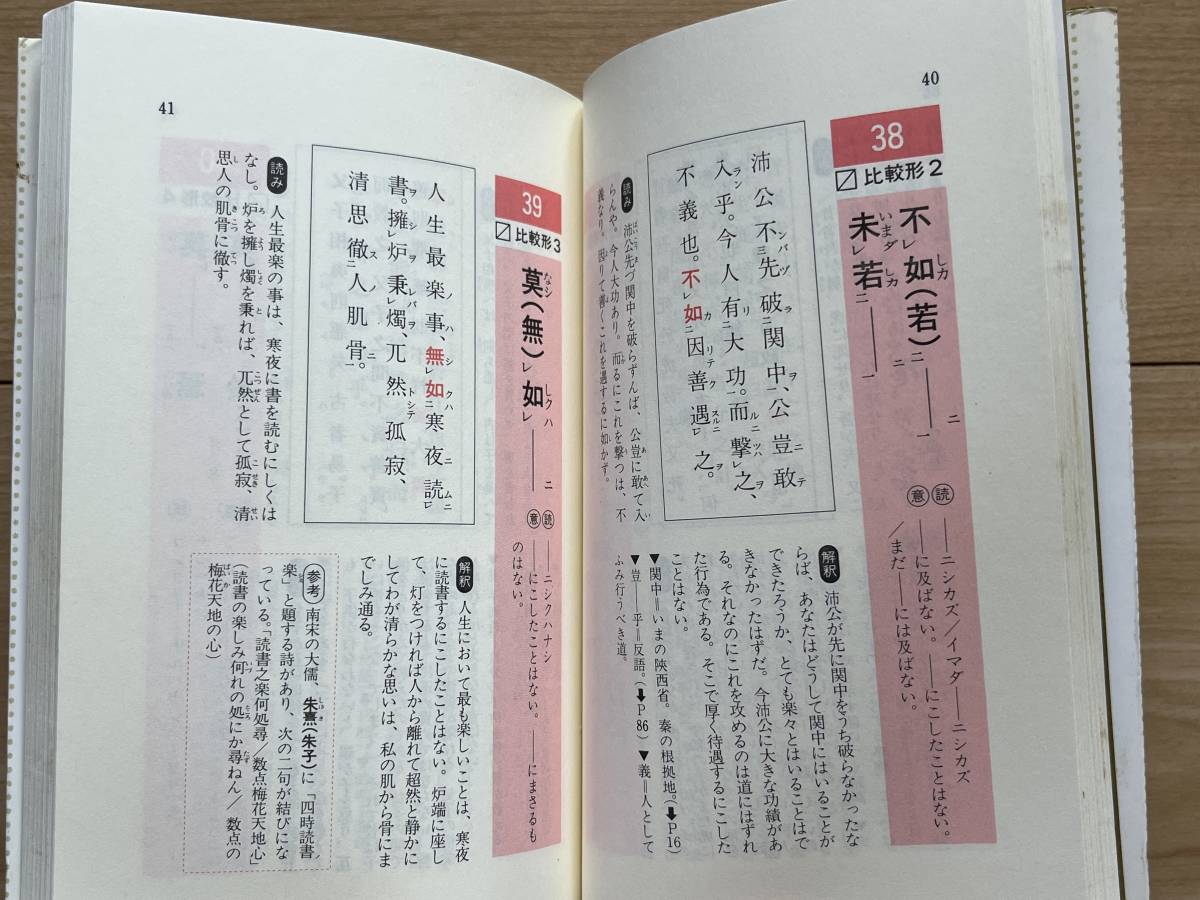 40
38
比較形2
不レ如(若)二――一
未レ若二――一
読 ――ニシカズ／イマダ――ニシカズ
意 ――に及ばない。――にこしたことはない。
／まだ――には及ばない。
沛公不先破関中、公豈敢
入乎。今人有大功。而撃之、
不義也。不如因善遇之。
読み 沛公先づ関中を破らずんば、公豈に敢て入
らんや。今人大功あり。而るにこれを撃つは、不
義なり。因りて善くこれを遇するに如かず。
解釈 沛公が先に関中をうち破らなかったな
らば、あなたはどうして関中にはいることが
できたろうか、とても楽々とはいることはで
きなかったはずだ。今沛公に大きな功績があ
る。それなのにこれを攻めるのは道にはずれ
た行為である。そこで厚く待遇するにこした
ことはない。
▼関中＝いまの陝西省。秦の根拠地。(➡P16)
▼豈――乎＝反語。(➡P86)▼義＝人として
ふみ行うべき道。
39
比較形3
莫(無)レ如レ――
読 ――ニシクハナシ
意 ――にこしたことはない。――にまさるも
のはない。
人生最楽事、無如寒夜読
書。擁炉秉燭、兀然孤寂、
清思徹人肌骨。
読み 人生最楽の事は、寒夜に書を読むにしくは
なし。炉を擁し燭を秉れば、兀然として孤寂、清
思人の肌骨に徹す。
解釈 人生において最も楽しいことは、寒夜
に読書するにこしたことはない。炉端に座し
て、灯をつければ人から離れて超然と静かに
してわが清らかな思いは、私の肌から骨にま
でしみ通る。
参考 南宋の大儒、朱熹(朱子)に「四時読書
楽」と題する詩があり、次の二句が結びにな
っている。「読書之楽何処尋／数点梅花天地心」
(読書の楽しみ何れの処にか尋ねん／数点の
梅花天地の心)
41